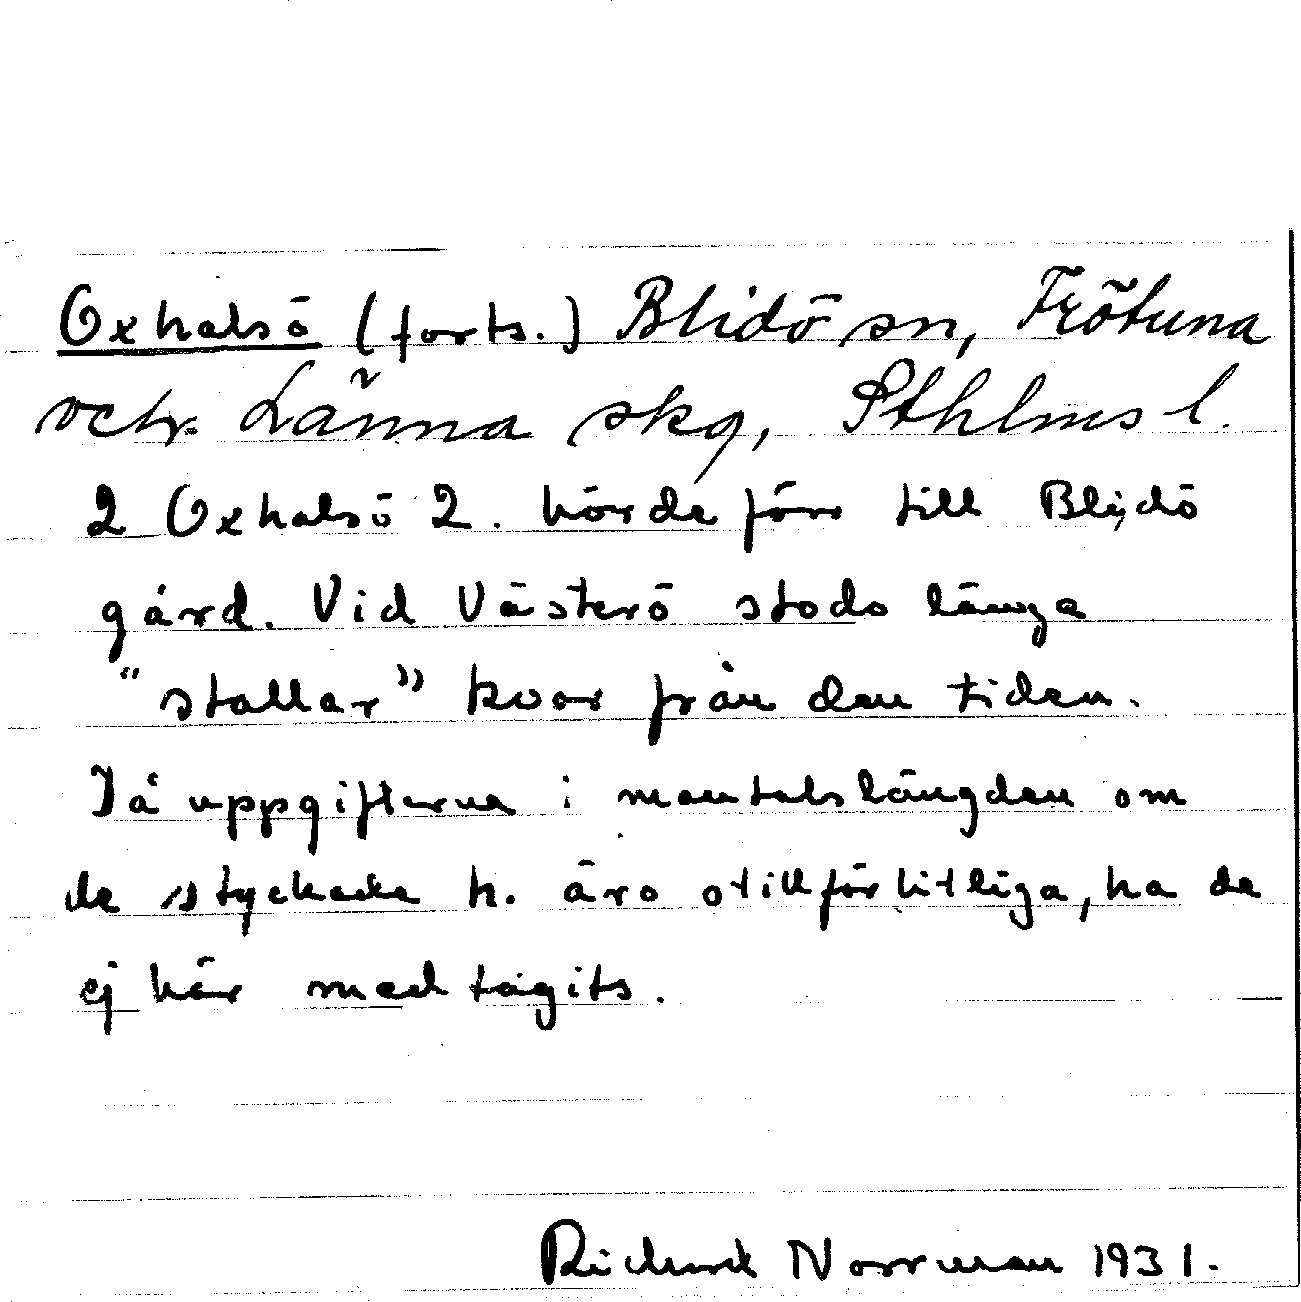 Oxhalsö (forts.) Blidö sn, Frötuna
och Länna skg, Sthlms l.
2 Oxhalsö 2. hörde förr till Blidö
gård. Vid Västerö stodo länga
"stallar" kvar från den tiden.
Då uppgifterna i mantalslängden om
de styckade h. äro otillförlitliga, ha de
ej här medtagits.
Richard Norrman 1931.